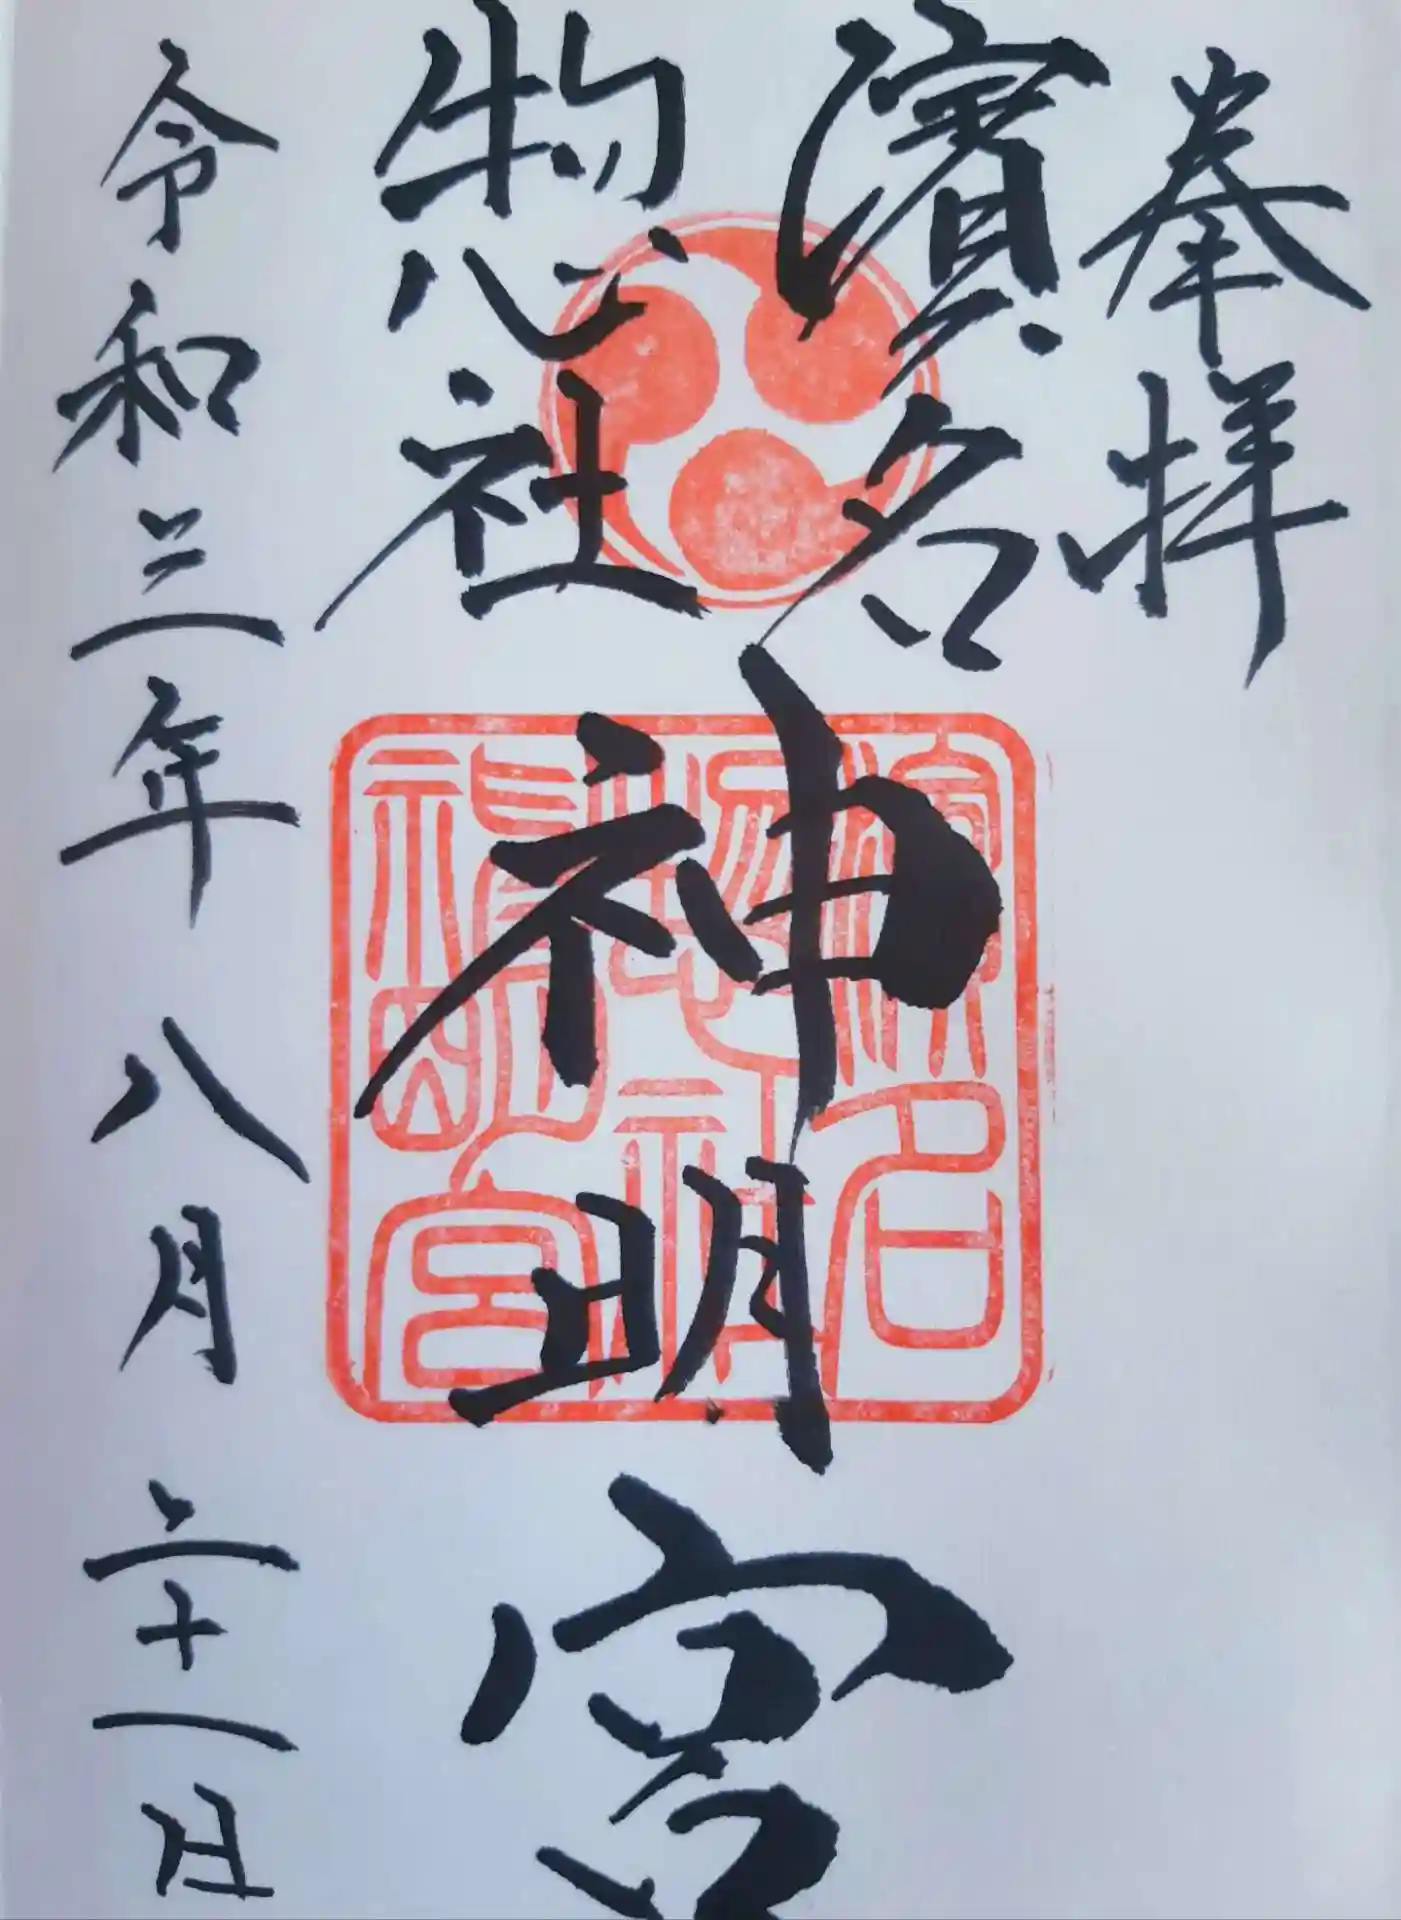 奉拝
濱名
惣社
神明宮
令和三年 八月 二十一日
濱名
惣社
神明宮